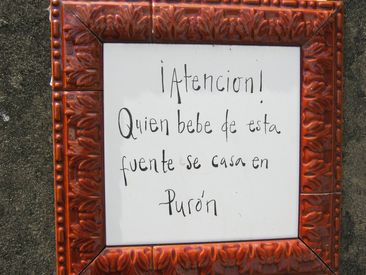 ¡Atencion!
Quien bebe de esta
fuente se casa en
Purón